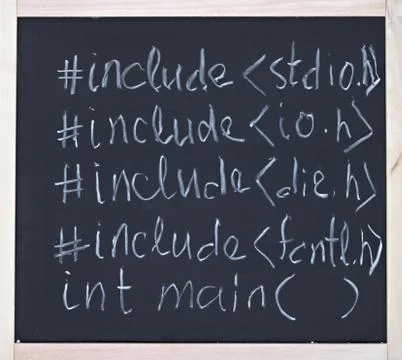 #include <stdio.h>
#include <io.h>
#include <die.h>
#include <fcntl.h>
int main( )